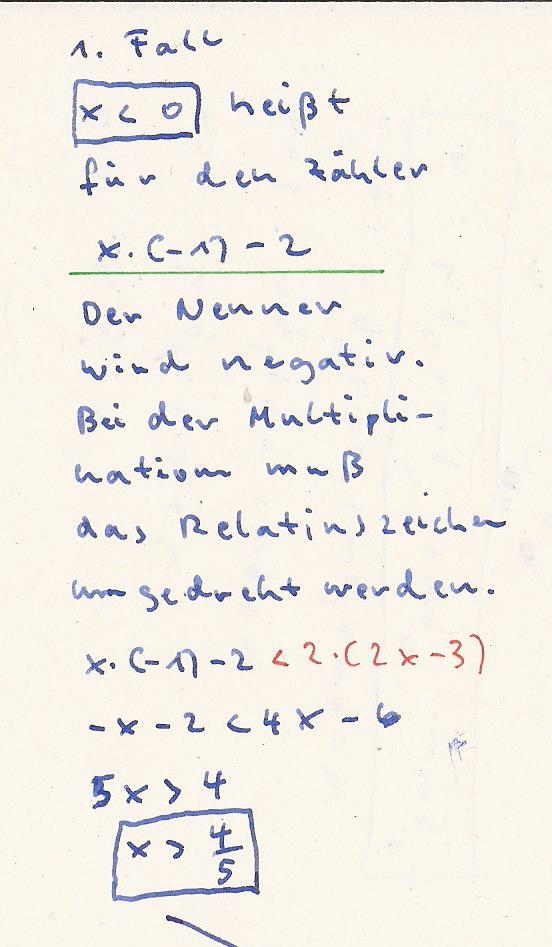 1. Fall
x < 0 heißt
für den Zähler
x · (-1) - 2
Der Nenner
wird negativ.
Bei der Multipli-
kation muß
das Relationszeichen
umgedreht werden.
x · (-1) - 2 < 2 · (2x - 3)
-x - 2 < 4x - 6
5x > 4
x > 4/5